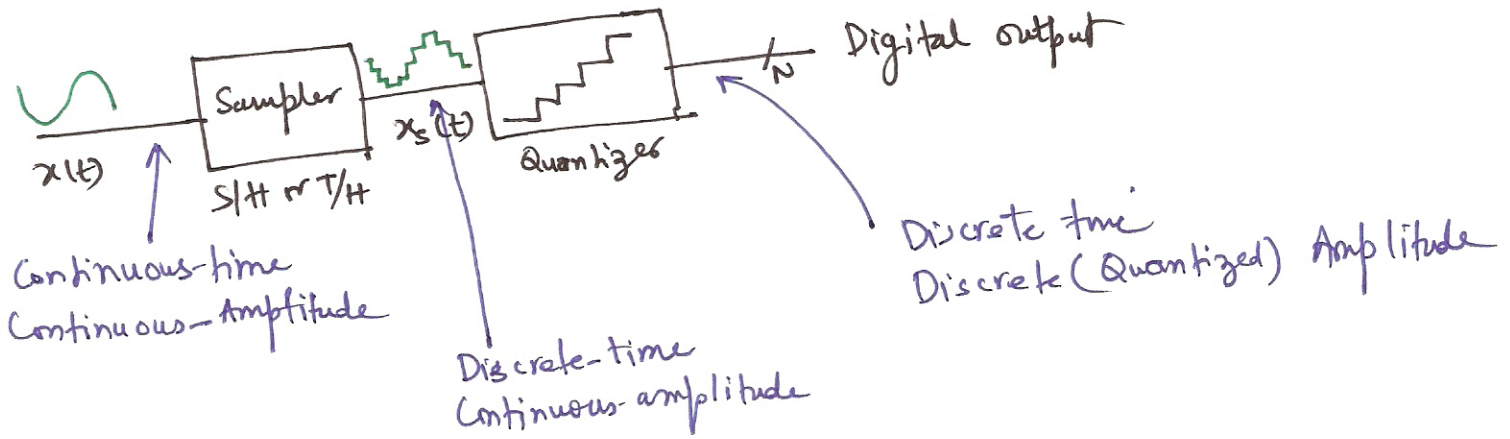 Sampler
x(t)
S/H or T/H
xs(t)
Quantizer
N
Digital output
Continuous-time
Continuous-Amptitude
Discrete-time
Continuous-amplitude
Discrete time
Discrete (Quantized) Amplitude